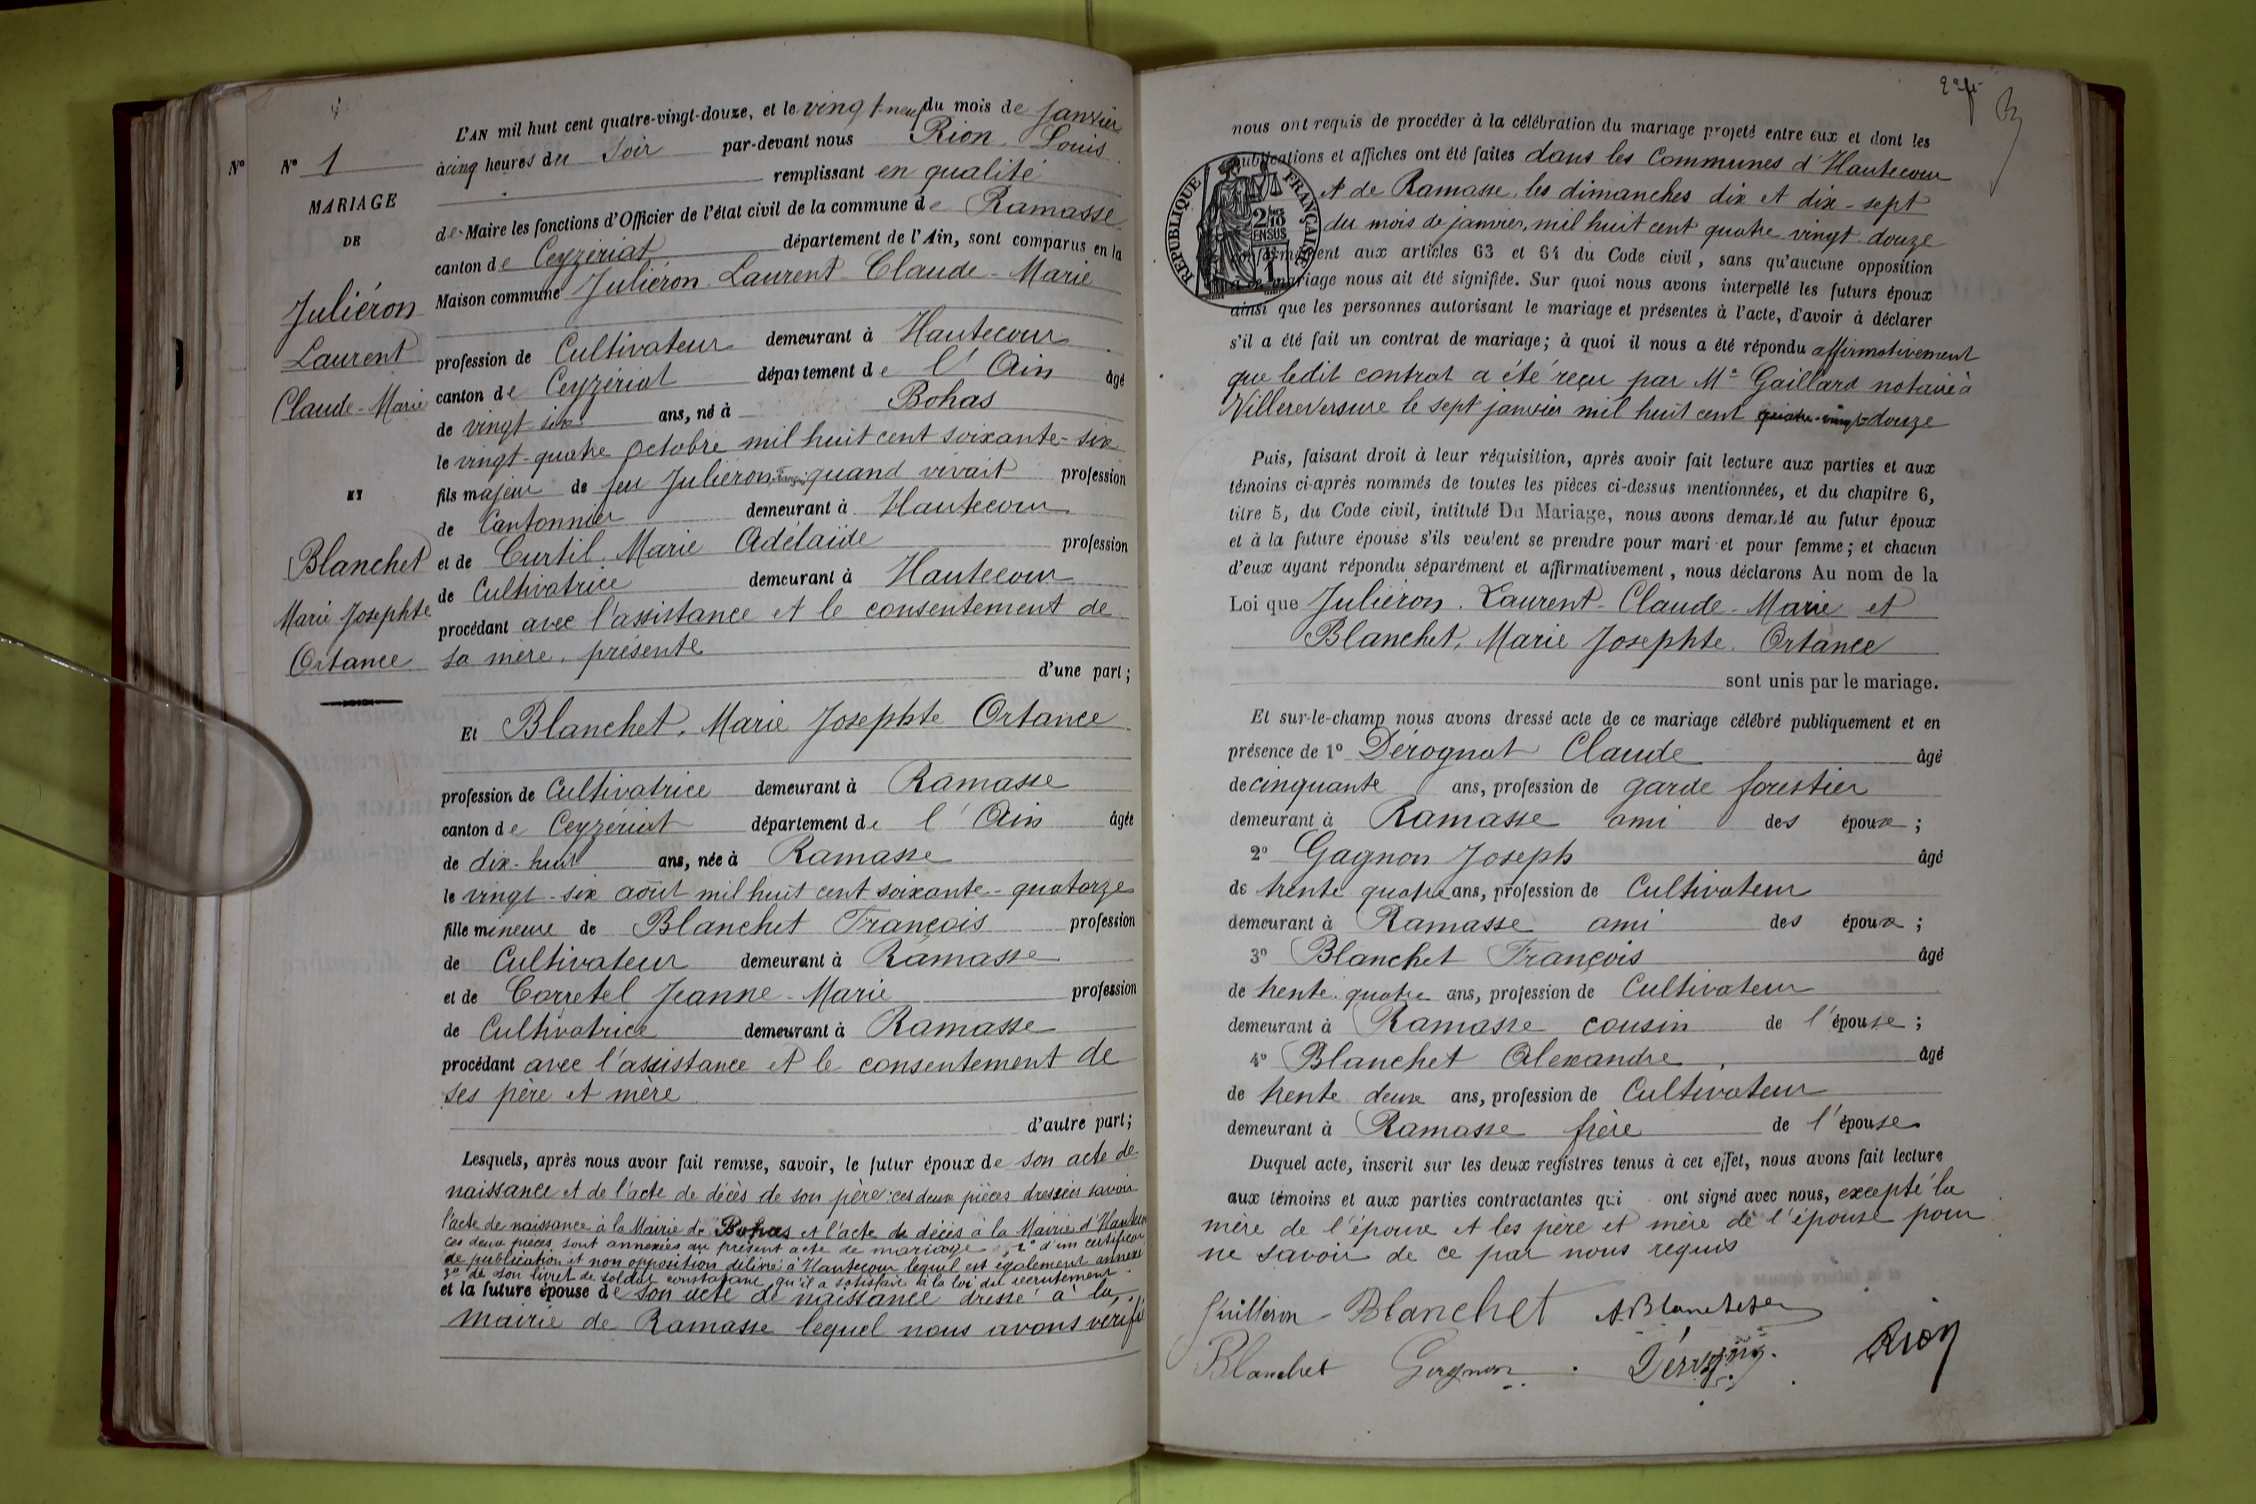 L'AN mil huit cent quatre-vingt-douze, et le vingt-neuf du mois de janvier
à cinq heures du Soir par-devant nous Rion Louis
remplissant en qualité
de Maire les fonctions d'Officier de l'état civil de la commune de Ramasse
canton de Ceyzériat département de l'Ain, sont comparus en la
Maison commune Juliéron Laurent-Claude-Marie
profession de Cultivateur demeurant à Hautecour
canton de Ceyzériat département de l'Ain âgé
de vingt six ans, né à Bohas
le vingt-quatre Octobre mil huit cent soixante-six
fils majeur de feu Juliéron, François quand vivait profession
de Cantonnier demeurant à Hautecour
et de Curtil Marie Adélaïde profession
de Cultivatrice demeurant à Hautecour
procédant avec l'assistance et le consentement de
sa mère, présente
d'une part;
Et Blanchet, Marie Josephte Ortance
profession de Cultivatrice demeurant à Ramasse
canton de Ceyzériat département de l'Ain âgée
de dix-huit ans, née à Ramasse
le vingt-six août mil huit cent soixante-quatorze
fille mineure de Blanchet François profession
de Cultivateur demeurant à Ramasse
et de Corretel Jeanne-Marie profession
de Cultivatrice demeurant à Ramasse
procédant avec l'assistance et le consentement de
ses père et mère
d'autre part;
Lesquels, après nous avoir fait remise, savoir, le futur époux de son acte de
naissance et de l'acte de décès de son père: ces deux pièces dressées savoir
l'acte de naissance à la Mairie de Bohas et l'acte de décès à la Mairie d'Hautecour
ces deux pièces sont annexées au présent acte de mariage; 2° d'un certificat
de publication et non opposition délivré à Hautecour lequel est également annexé
3° de son livret de soldat constatant qu'il a satisfait à la loi du recrutement
et la future épouse de son acte de naissance dressé à la
mairie de Ramasse lequel nous avons vérifié
N°
N° 1
MARIAGE
DE
Juliéron
Laurent
Claude-Marie
ET
Blanchet
Marie Josephte
Ortance
3
nous ont requis de procéder à la célébration du mariage projeté entre eux et dont les
publications et affiches ont été faites dans les Communes d'Hautecour
et de Ramasse, les dimanches dix et dix-sept
du mois de janvier, mil huit cent quatre vingt douze
conformément aux articles 63 et 64 du Code civil, sans qu'aucune opposition
mariage nous ait été signifiée. Sur quoi nous avons interpellé les futurs époux
ainsi que les personnes autorisant le mariage et présentes à l'acte, d'avoir à déclarer
s'il a été fait un contrat de mariage; à quoi il nous a été répondu affirmativement
que ledit contrat a été reçu par Me Gaillard notaire à
Villereversure le sept janvier mil huit cent quatre-vingt douze
RÉPUBLIQUE FRANÇAISE
2/10
EN SUS
1
Puis, faisant droit à leur réquisition, après avoir fait lecture aux parties et aux
témoins ci-après nommés de toutes les pièces ci-dessus mentionnées, et du chapitre 6,
titre 5, du Code civil, intitulé Du Mariage, nous avons demandé au futur époux
et à la future épouse s'ils veulent se prendre pour mari et pour femme; et chacun
d'eux ayant répondu séparément et affirmativement, nous déclarons Au nom de la
Loi que Juliéron. Laurent-Claude-Marie et
Blanchet, Marie Josephte Ortance
sont unis par le mariage.
Et sur-le-champ nous avons dressé acte de ce mariage célébré publiquement et en
présence de 1° Dérognat Claude âgé
de cinquante ans, profession de garde forestier
demeurant à Ramasse ami des époux;
2° Gagnon Joseph âgé
de trente quatre ans, profession de Cultivateur
demeurant à Ramasse ami des époux;
3° Blanchet François âgé
de trente quatre ans, profession de Cultivateur
demeurant à Ramasse cousin de l'épouse;
4° Blanchet Alexandre âgé
de trente deux ans, profession de Cultivateur
demeurant à Ramasse frère de l'épouse
Duquel acte, inscrit sur les deux registres tenus à cet effet, nous avons fait lecture
aux témoins et aux parties contractantes qui ont signé avec nous, excepté la
mère de l'époux et les père et mère de l'épouse pour
ne savoir de ce par nous requis
Juilléron Blanchet A. Blanchet
Blanchet Gagnon Rion